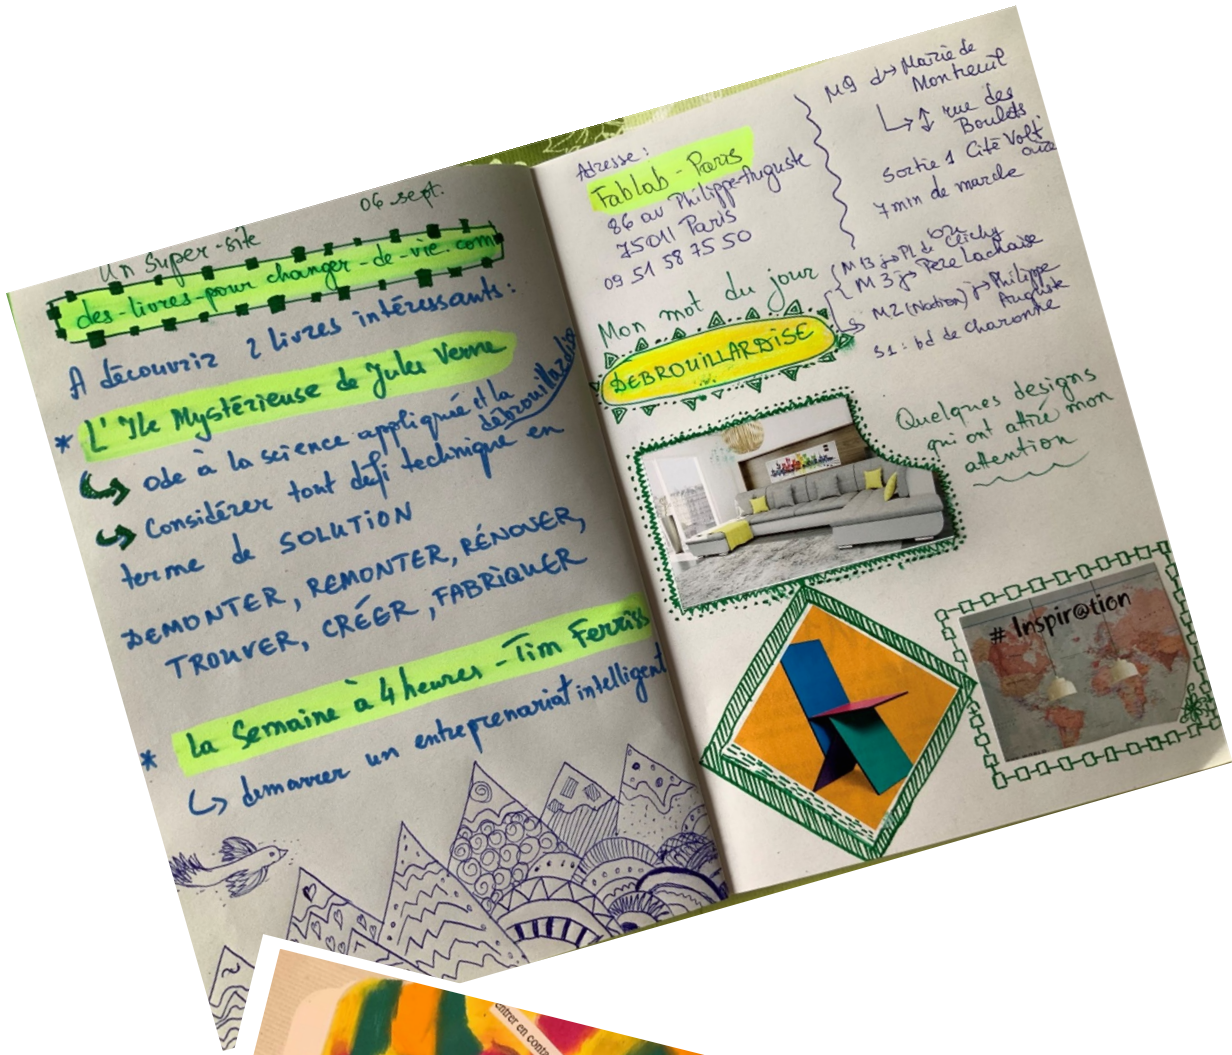 06 sept.
Un super-site
des-livres-pour changer-de-vie.com
A découvrir 2 livres intéressants:
* L'Ile Mystérieuse de Jules Verne
ode à la science appliquée et la
débrouillardise
Considérer tout défi technique en
terme de SOLUTION
DEMONTER, REMONTER, RÉNOVER,
TROUVER, CRÉER, FABRIQUER
* La Semaine à 4 heures - Tim Ferriss
démarrer un entreprenariat intelligent
Adresse:
Fablab-Paris
86 av Philippe-Auguste
75011 Paris
09 51 58 75 50
M9 Mairie de
Montreuil
rue des
Boulets
Sortie 1 Cité Voltaire
7 min de marche
Mon mot du jour
DEBROUILLARDISE
M13 Pl de Clichy
M3 Père Lachaise
M2 (Nation) Philippe
Auguste
S1: bd de Charonne
Quelques designs
qui ont attiré mon
attention
# Inspir@tion
entrer en conta